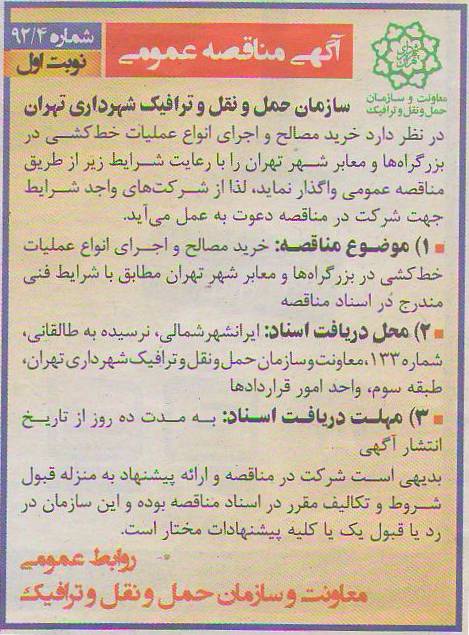 شماره ۹۲/۴
نوبت اول
آگهی مناقصه عمومی
معاونت و سازمان
حمل و نقل و ترافیک
سازمان حمل و نقل و ترافیک شهرداری تهران
در نظر دارد خرید مصالح و اجرای انواع عملیات خط‌کشی در
بزرگراه‌ها و معابر شهر تهران را با رعایت شرایط زیر از طریق
مناقصه عمومی واگذار نماید، لذا از شرکت‌های واجد شرایط
جهت شرکت در مناقصه دعوت به عمل می‌آید.
۱) موضوع مناقصه: خرید مصالح و اجرای انواع عملیات
خط‌کشی در بزرگراه‌ها و معابر شهر تهران مطابق با شرایط فنی
مندرج در اسناد مناقصه
۲) محل دریافت اسناد: ایرانشهر‌شمالی، نرسیده به طالقانی،
شماره ۱۳۳، معاونت و سازمان حمل و نقل و ترافیک شهرداری تهران،
طبقه سوم، واحد امور قراردادها
۳) مهلت دریافت اسناد: به مدت ده روز از تاریخ
انتشار آگهی
بدیهی است شرکت در مناقصه و ارائه پیشنهاد به منزله قبول
شروط و تکالیف مقرر در اسناد مناقصه بوده و این سازمان در
رد یا قبول یک یا کلیه پیشنهادات مختار است.
روابط عمومی
معاونت و سازمان حمل و نقل و ترافیک